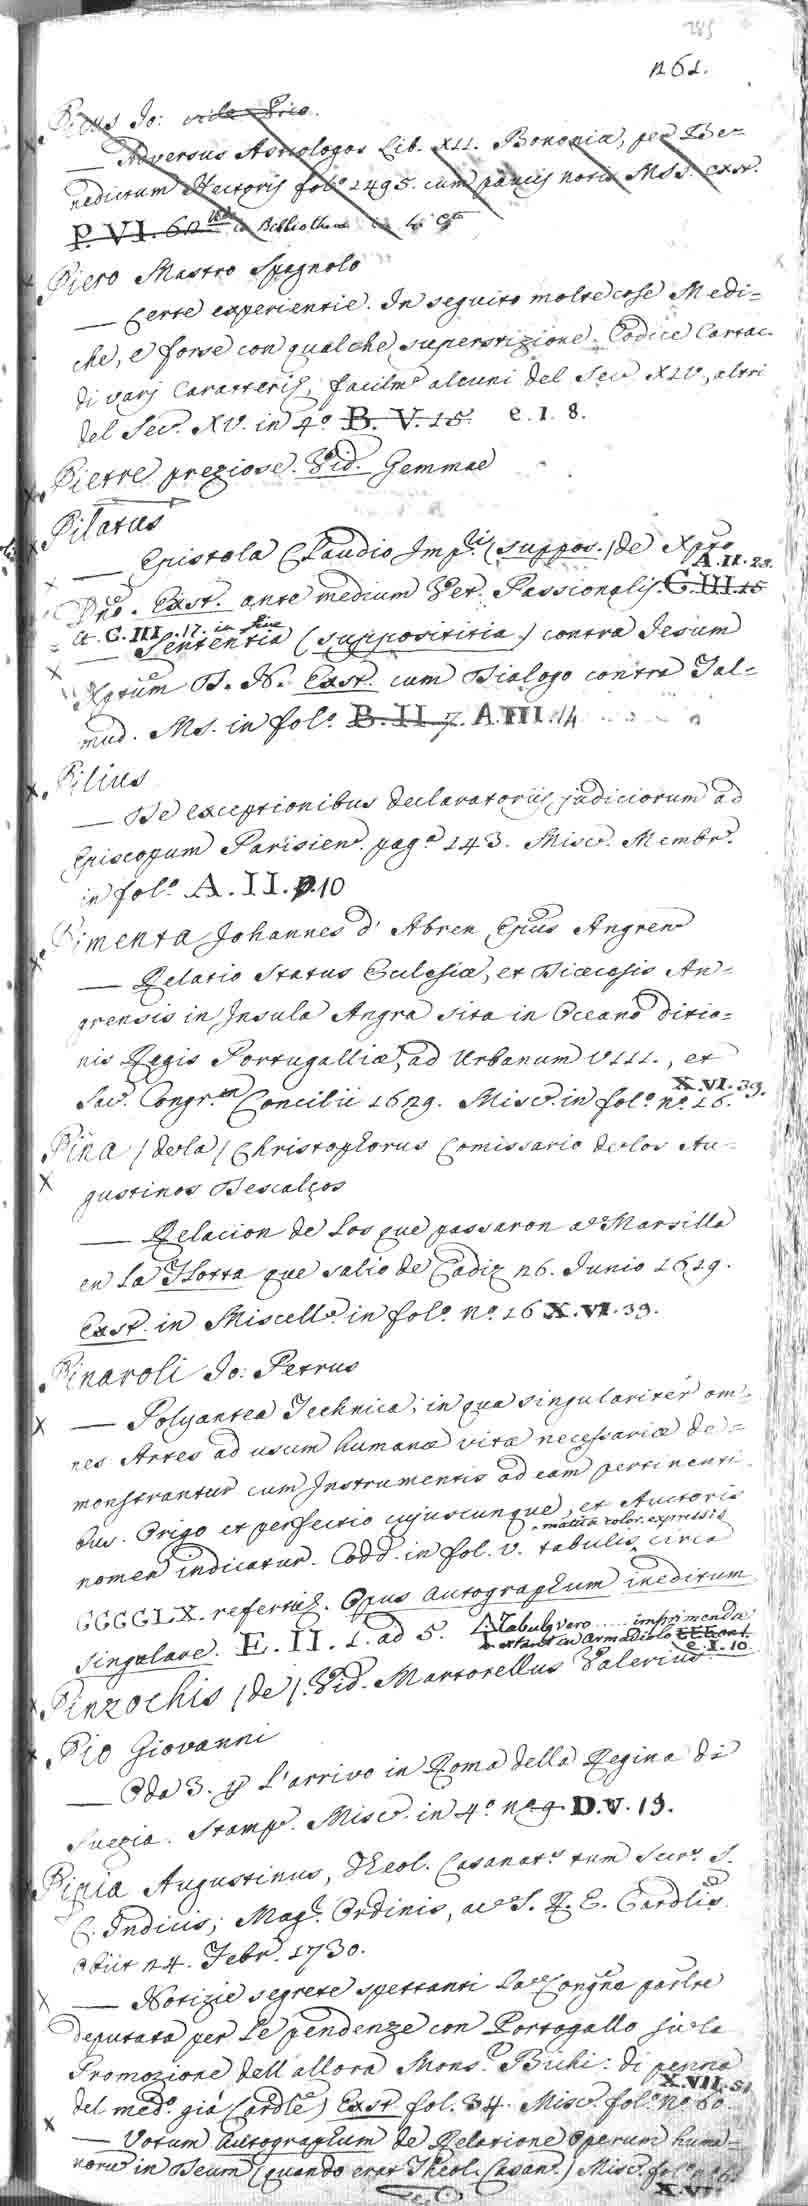 285
261.
Picus Jo:
— Adversus Astrologos Lib. XII. Bononiæ, per Be=
nedictum Hectoris fol.o 1495. cum paucis notis MSS. exst.
P. VI. 62 in Bibliotheca
Piero Mastro Spagnolo
— Certe experientie. In seguito molte cose Medi=
che, e forse con qualche superstizione. Codice Cartac.
di varj Caratteri, facilm.e alcuni del Sec. XIV, altri
del Sec. XV. in 4.o B. V. 15 e. I. 8.
Pietre preziose. Vid. Gemmae
Pilatus
— Epistola Claudio Imp.ri (suppos.) de Xpto
A. II. 23.
Dno. Exst. ante medium Vet. Passionalis. C. III. 15
et C. III. 17. in fine
— Sententia (supposititia) contra Jesum
Xptum D. N. Exst. cum Dialogo contra Tal=
mud. Ms. in fol.o B. II. 7. A. III. 14
Pilius
— De exceptionibus declaratoriis judiciorum ad
Episcopum Parisien. pag.a 143. Misc. Membr.
in fol.o A. II. 10
Pimenta Johannes d' Abreu Epus Angren.
— Relatio Status Ecclesiæ, et Diœcesis An=
grensis in Insula Angra sita in Oceano ditio=
nis Regis Portugalliæ, ad Urbanum VIII., et
X. VI. 39.
Sac. Congr.em Concilii 1629. Misc. in fol.o n.o 16.
Pina (dela) Christophorus Comissario delos Au=
gustinos Descalços
— Relacion de los que passaron a Marsilla
en la Flotta que salio de Cadiz 26. Junio 1619.
Exst. in Miscell. in fol.o N.o 16 X. VI. 39.
Pinaroli Jo: Petrus
— Polyantea Technica; in qua singularitér om=
nes Artes ad usum humanæ vitæ necessariæ de=
monstrantur cum Instrumentis ad eam pertinenti=
bus. Origo et perfectio cujuscunque, et Auctoris
nativis color. expressis
nomen indicatur. Codd. in fol. V. tabulis circa
CCCCLX. refertis. Opus autographum ineditum
singulare. E. II. 1. ad 5. Tabulę vero ..... imprimendæ
exstant in armadiolo e. I. 10
Pinzochis (de). Vid. Martorellus Valerius
Pio Giovanni
— Oda 3. p L'arrivo in Roma della Regina di
Suezia. Stamp. Misc. in 4.o n.o 9 D. V. 19.
Pipia Augustinus, Theol. Casanat.s tum Secr.s S.
C. Indicis; Mag.r Ordinis, ac S. R. E. Cardlis.
obiit 24. Febr. 1730.
— Notizie segrete spettanti la Congne partre
deputata per le pendenze con Portogallo su la
Promozione dell'allora Mons.r Bichi: di penna
X. VII. 51
del med.o già Cardle) Exst. fol. 34. Misc. fol.o n.o 60.
— Votum autographum de Relatione Operum huma=
norum in Deum (quando erat Theol. Casan.) Misc. fol.o
X. VI.